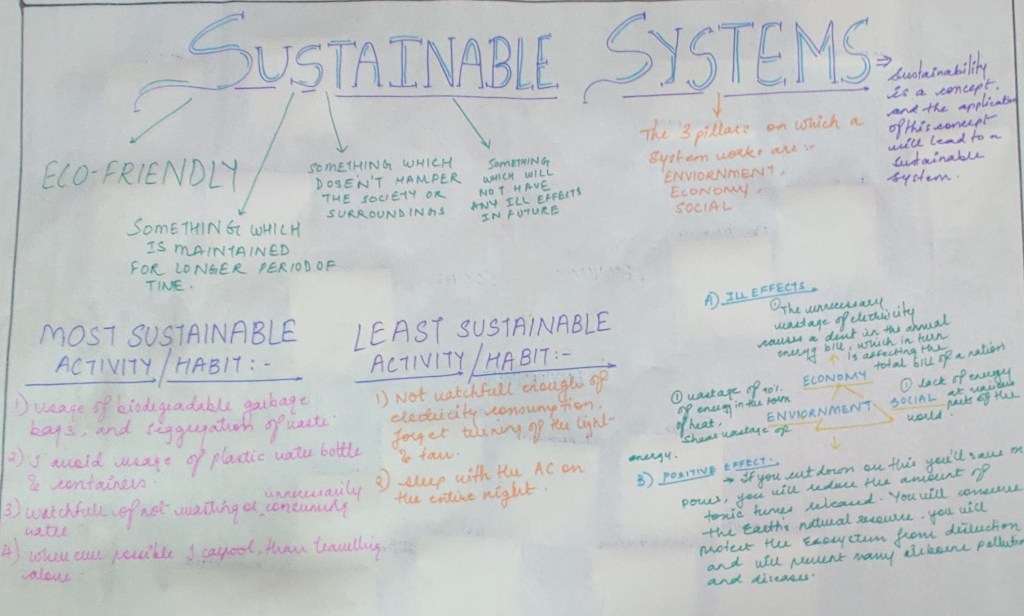 SUSTAINABLE SYSTEMS
⇒ Sustainability
is a concept.
and the application
of this concept
will lead to a
sustainable
system.
ECO-FRIENDLY
SOMETHING WHICH
IS MAINTAINED
FOR LONGER PERIOD OF
TIME.
SOMETHING WHICH
DOSEN'T HAMPER
THE SOCIETY OR
SURROUNDINGS
SOMETHING
WHICH WILL
NOT HAVE
ANY ILL EFFECTS
IN FUTURE
The 3 pillars on which a
system works are :-
ENVIORNMENT,
ECONOMY,
SOCIAL
MOST SUSTAINABLE
ACTIVITY/HABIT:-
1) usage of biodegradable garbage
bags, and seggregation of waste
2) I avoid usage of plastic water bottle
& containers.
3) watchfull of not wasting or unnecessarily consuming
water
4) when ever possible I carpool, than travelling
alone
LEAST SUSTAINABLE
ACTIVITY/HABIT:-
1) Not watchfull enough of
electricity consumption,
forget turning of the light
& fan.
2) sleep with the AC on
the entire night.
A) ILL EFFECTS
① The unnecessary
wastage of electricity
causes a dent in the annual
energy bill, which in turn
is affecting the
total bill of a nation
ECONOMY
① wastage of
of energy in the form
of heat,
wastage of
energy.
ENVIORNMENT
SOCIAL
① lack of energy
at various
part of the
world
B) POSITIVE EFFECT.
→ If you cut down on this you'll save on
power, you will reduce the amount of
toxic fumes released. You will conserve
the Earth's natural resource. you will
protect the Ecosystem from
and will prevent many airborne pollution
and diseases.